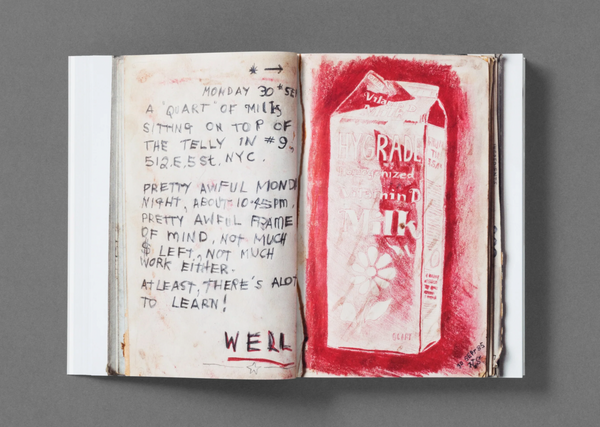 * →
MONDAY 30 * SE
A "QUART" OF Milk
SITTING ON TOP OF
THE TELLY IN #9,
512.E.5 St. NYC.
PRETTY AWFUL MOND
NIGHT, ABOUT 10:45PM.
PRETTY AWFUL FRAME
OF MIND, NOT MUCH
$ LEFT, NOT MUCH
WORK EITHER.
AT LEAST, THERE'S ALOT
TO LEARN!
WELL
Vita
HYGRADE
Homogenized
Vitamin D
Milk